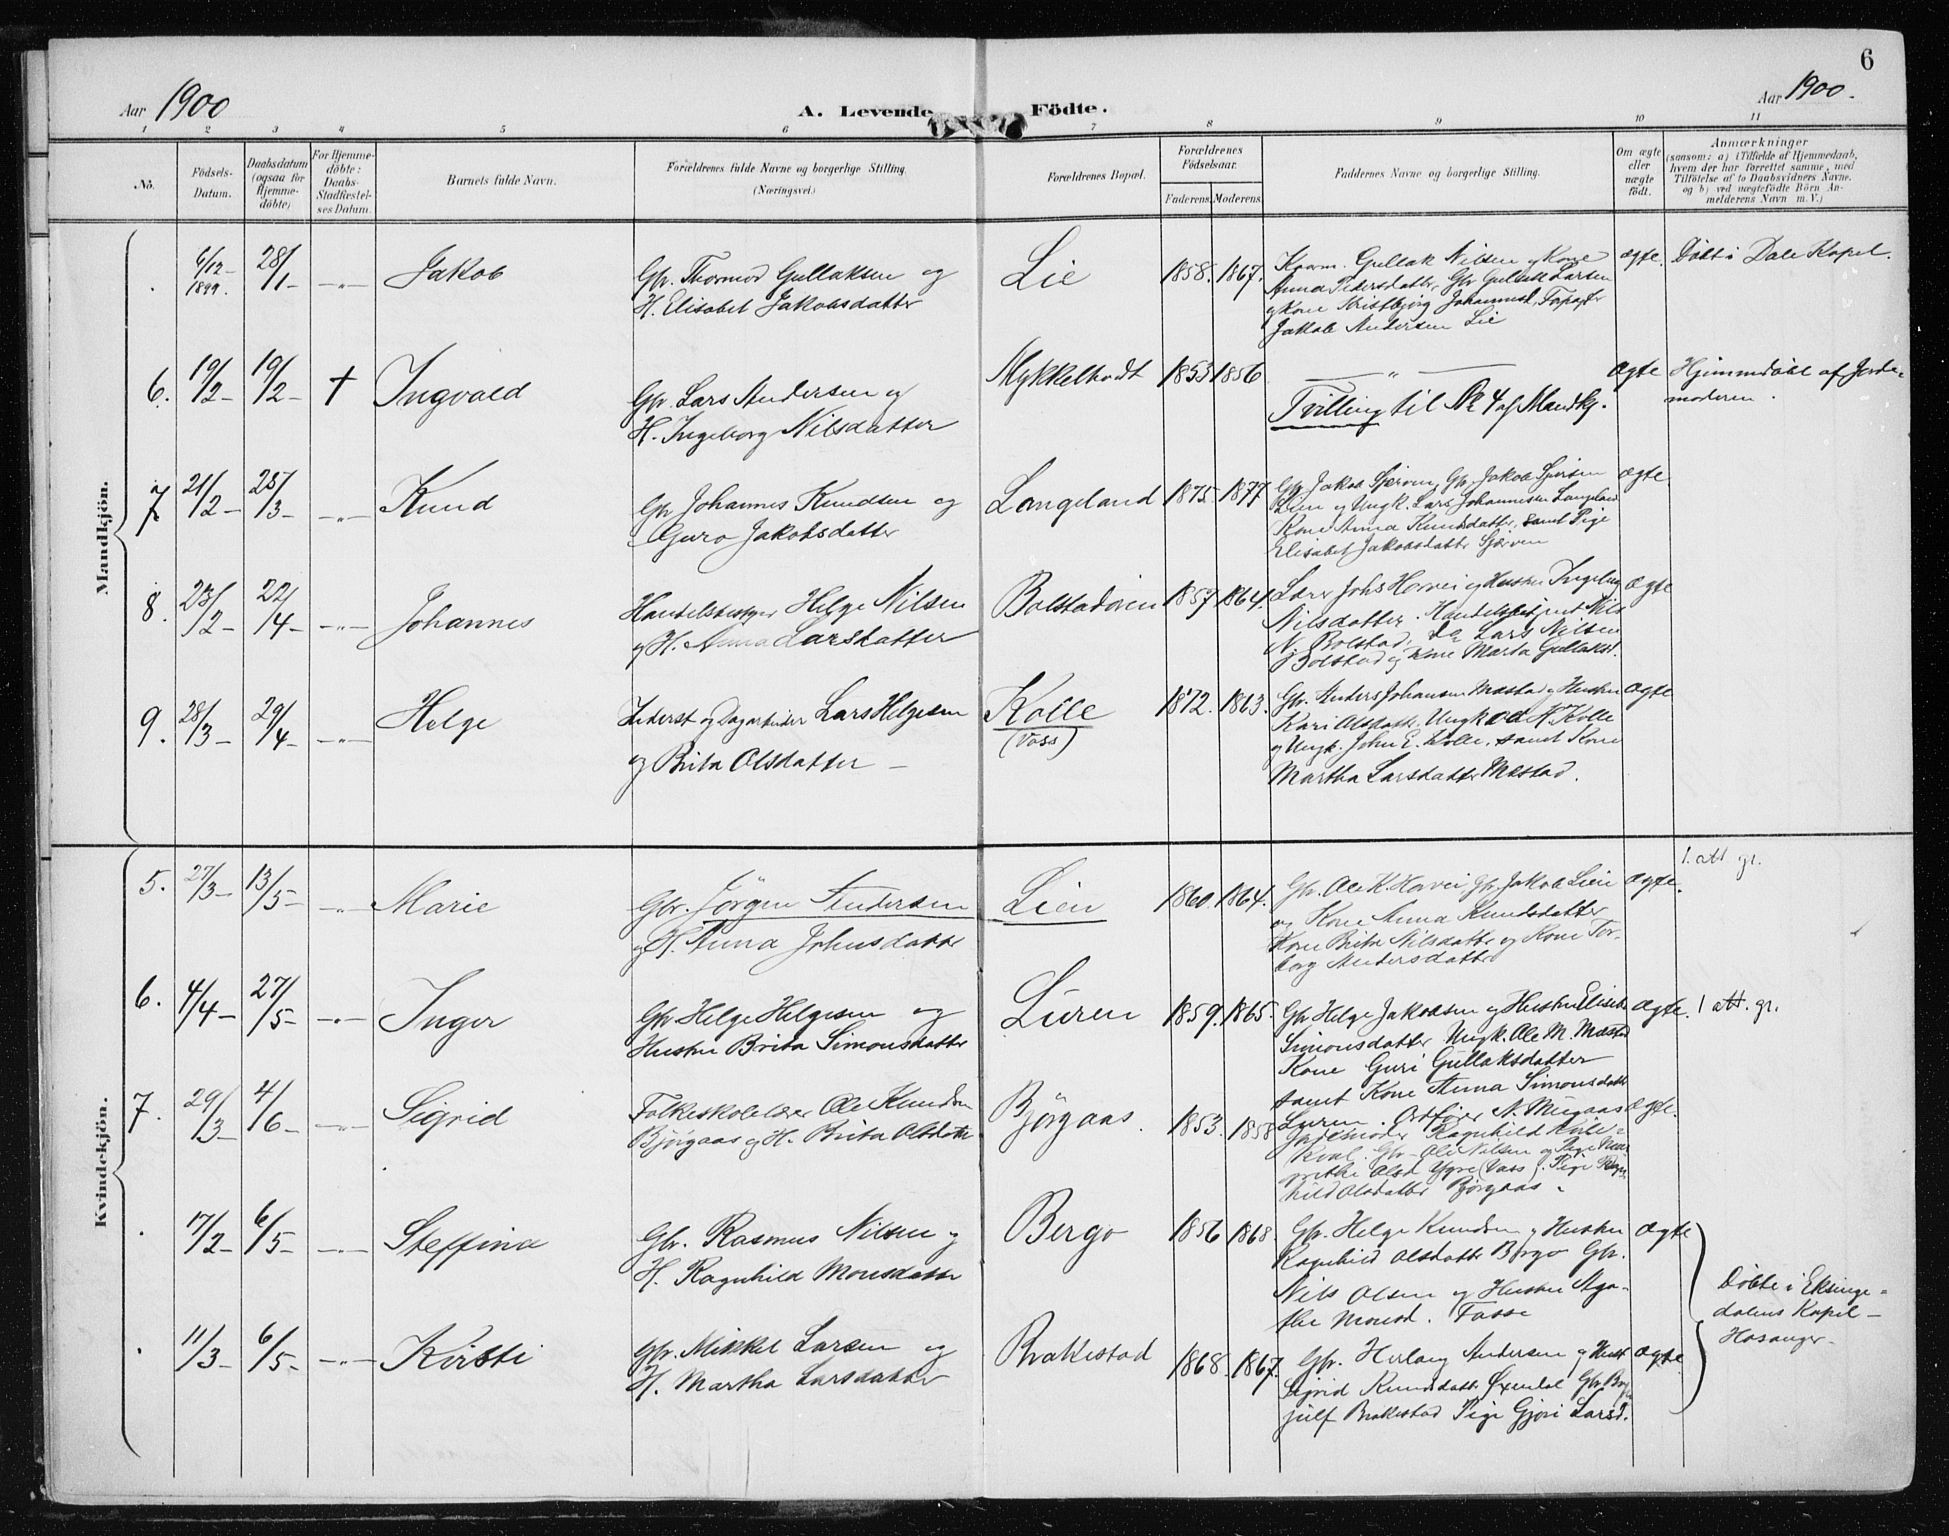 6
Aar 1900
A. Levende Födte.
Aar 1900.
1 2 3 4 5 6 7 8 9 10 11
No.
Födsels-
Datum.
Daabsdatum
(ogsaa for
Hjemme-
döbte)
For Hjemme-
döbte:
Daabs-
Stadfæstel-
ses Datum.
Barnets fulde Navn.
Forældrenes fulde Navne og borgerlige Stilling.
(Næringsvei.)
Forældrenes Bopæl.
Forældrenes
Födselsaar.
Faderens. Moderens.
Faddernes Navne og borgerlige Stilling.
Om ægte
eller
uægte
födt.
Anmærkninger
(saasom: a) i Tilfælde af Hjemmedaab,
hvem der har forrettet samme, med
Tilföielse af to Daabsvidners Navne.
og b) ved uægtefödte Börn An-
melderens Navn m. V.)
Mandkjön.
6/12 1899. 28/1 Jakob
Gbr. Thormod Gullaksen og
H. Elisabet Jakobsdatter
Lie 1858. 1867.
Kaarm. Gullak Nilsen og Kone
Anna Pedersdatter, Gbr Gullak Larsen
og Kone Kristbjørg Johannesd,
Jakob Andersen Lie
ægte. Döbt i Dale Kapel.
6. 19/2 19/2 † Ingvald
Gbr. Lars Andersen og
H. Ingeborg Nilsdatter
Mykkeltvedt 1853 1856
Tvilling til No 4 af Mandkj.
ægte Hjemmedöbt af Jorde-
moderen.
7 21/2 25/3 Knud
Gbr Johannes Knudsen og
Guro Jakobsdatter
Langeland 1875 1877
Gbr. Jakob Sjørven, Gbr. Jakob Sjursen
Lien og Ungk. Lars Johannesen Langeland
Kone Anna Knudsdatter, samt Pige
Elisabet Jakobsdatter Sjørven
ægte
8. 23/2 22/4 Johannes
Handelsbetjer Helge Nilsen
og H. Anna Larsdatter
Bolstadøren 1857 1864.
Lærer Johs Horvei og Hustru Ingeborg
Nilsdatter. Handelsbetjent Nils
N. Bolstad, do Lars Nilsen
Bolstad og Kone Marta Gullaksd.
ægte
9. 28/3 29/4 Helge
Inderst og Dagarbeider Lars Helgesen
og Brita Olsdatter
Kolle
(Voss)
1872. 1863.
Gbr. Anders Johansen Mæstad og Hustru
Kari Olsdatt. Ungk Odd N. Kolle
og Ungk. John E. Kolle, samt Kone
Martha Larsdatter Mæstad.
ægte
Kvindekjön.
5. 27/3 13/5 Marie
Gbr. Jörgen Andersen
og H. Anna Johnsdatter
Lien 1860. 1864.
Gbr. Ole K. Horvei, Gbr. Jakob Lien
og Kone Anna Knudsdatter
Kone Brita Nilsdatter og Kone Tor-
borg Andersdatter
ægte. 1. att gr.
6. 4/4 27/5 Inger
Gbr Helge Helgesen og
Hustru Brita Simonsdatter
Lüren 1859. 1865.
Gbr Helge Jakobsen og Hustru Elisabet
Simonsdatter Ungk. Ole M. Mæstad
Kone Guri Gullaksdatter
samt Kone Anna Simonsdatter
Luren.
ægte. 1 att. gr.
7. 29/3 4/6 Sigrid
Folkeskolelærer Ole Knudsen
Bjørgaas og H. Brita Olsdatter
Bjørgaas. 1853. 1858
Ordfører N. Mugaas
Jordemoder Ragnhild Horve-
Kval. Gbr. Ole Nilsen og Pige Mar-
grethe Olsd Ygre (Voss). Pige Ragn-
hild Olsdatter Bjørgaas.
ægte.
17/2 6/5 Steffina
Gbr. Rasmus Nilsen og
H. Ragnhild Monsdatter
Bergo 1856 1868.
Gbr. Helge Knudsen og Hustru
Ragnhild Olsdatter Bergo Gbr.
Nils Olsen og Hustru Aga-
the Monsd. Fosse
ægte
Döbte i Eksinge-
dalens Kapel -
Hosanger -
11/3 6/5 Kirsti
Gbr. Mikkel Larsen og
H. Martha Larsdatter
Brakestad 1868. 1867.
Gbr. Herlaug Andersen og Hust
Sigrid Knudsdatter Gbr.
julf Brakestad Pige Gjøri Larsd.
ægte